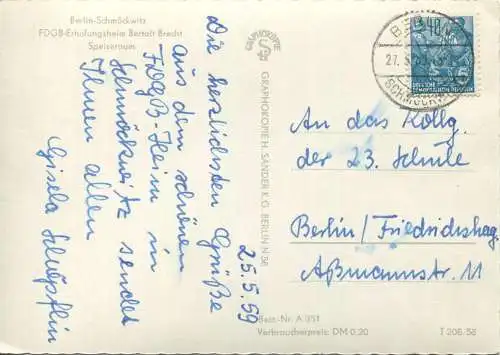 Berlin-Schmöckwitz
FDGB-Erholungsheim Bertolt Brecht
Speiseraum
Die herzlichsten Grüße
aus dem schönen
FDGB Heim in
Schmöckwitz sendet
Ihnen allen
Gisela Schüpflin
25.5.59
GRAPHOKOPIE
GRAPHOKOPIE H. SANDER K.G. BERLIN N 58
BERLIN
27.5.
SCHMÖCKWITZ
An das Kollg.
der 23. Schule
Berlin/Friedrichshag.
Aßmannstr. 11
Best.-Nr. A 1/51
Verbraucherpreis: DM 0,20
T 208/58